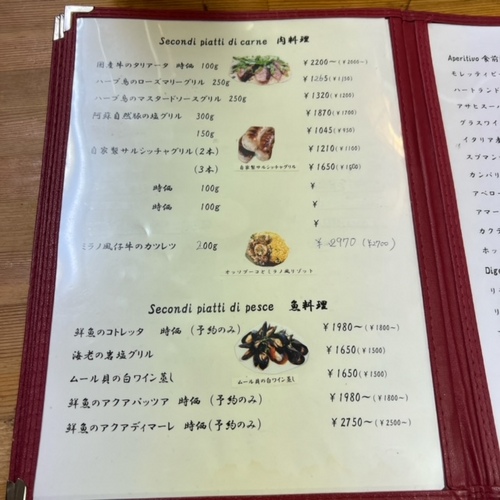 Secondi piatti di carne 肉料理
国産牛のタリアータ 時価 100g ¥2200~(¥2000~)
ハーブ鳥のローズマリーグリル 250g ¥1265(¥1150)
ハーブ鳥のマスタードソースグリル 250g ¥1320(¥1200)
阿蘇自然豚の塩グリル 300g ¥1870(¥1700)
150g ¥1045(¥950)
自家製サルシッチャグリル(2本) ¥1210(¥1100)
(3本) ¥1650(¥1500)
自家製サルシッチャグリル
時価 100g ¥
時価 100g ¥
¥
ミラノ風仔牛のカツレツ 200g ¥2970(¥2700)
オッソブーコとミラノ風リゾット
Secondi piatti di pesce 魚料理
鮮魚のコトレッタ 時価 (予約のみ) ¥1980~(¥1800~)
海老の岩塩グリル ¥1650(¥1500)
ムール貝の白ワイン蒸し ¥1650(¥1500)
ムール貝の白ワイン蒸し
鮮魚のアクアパッツア 時価 (予約のみ) ¥1980~(¥1800~)
鮮魚のアクアディマーレ 時価(予約のみ) ¥2750~(¥2500~)
Aperitivo 食前
モレッティビ
ハートランド
アサヒスーパ
グラスワイ
イタリア産
スプマン
カンパリ
アペロ
アマー
カクテ
ホッ
Dige
リ
リ